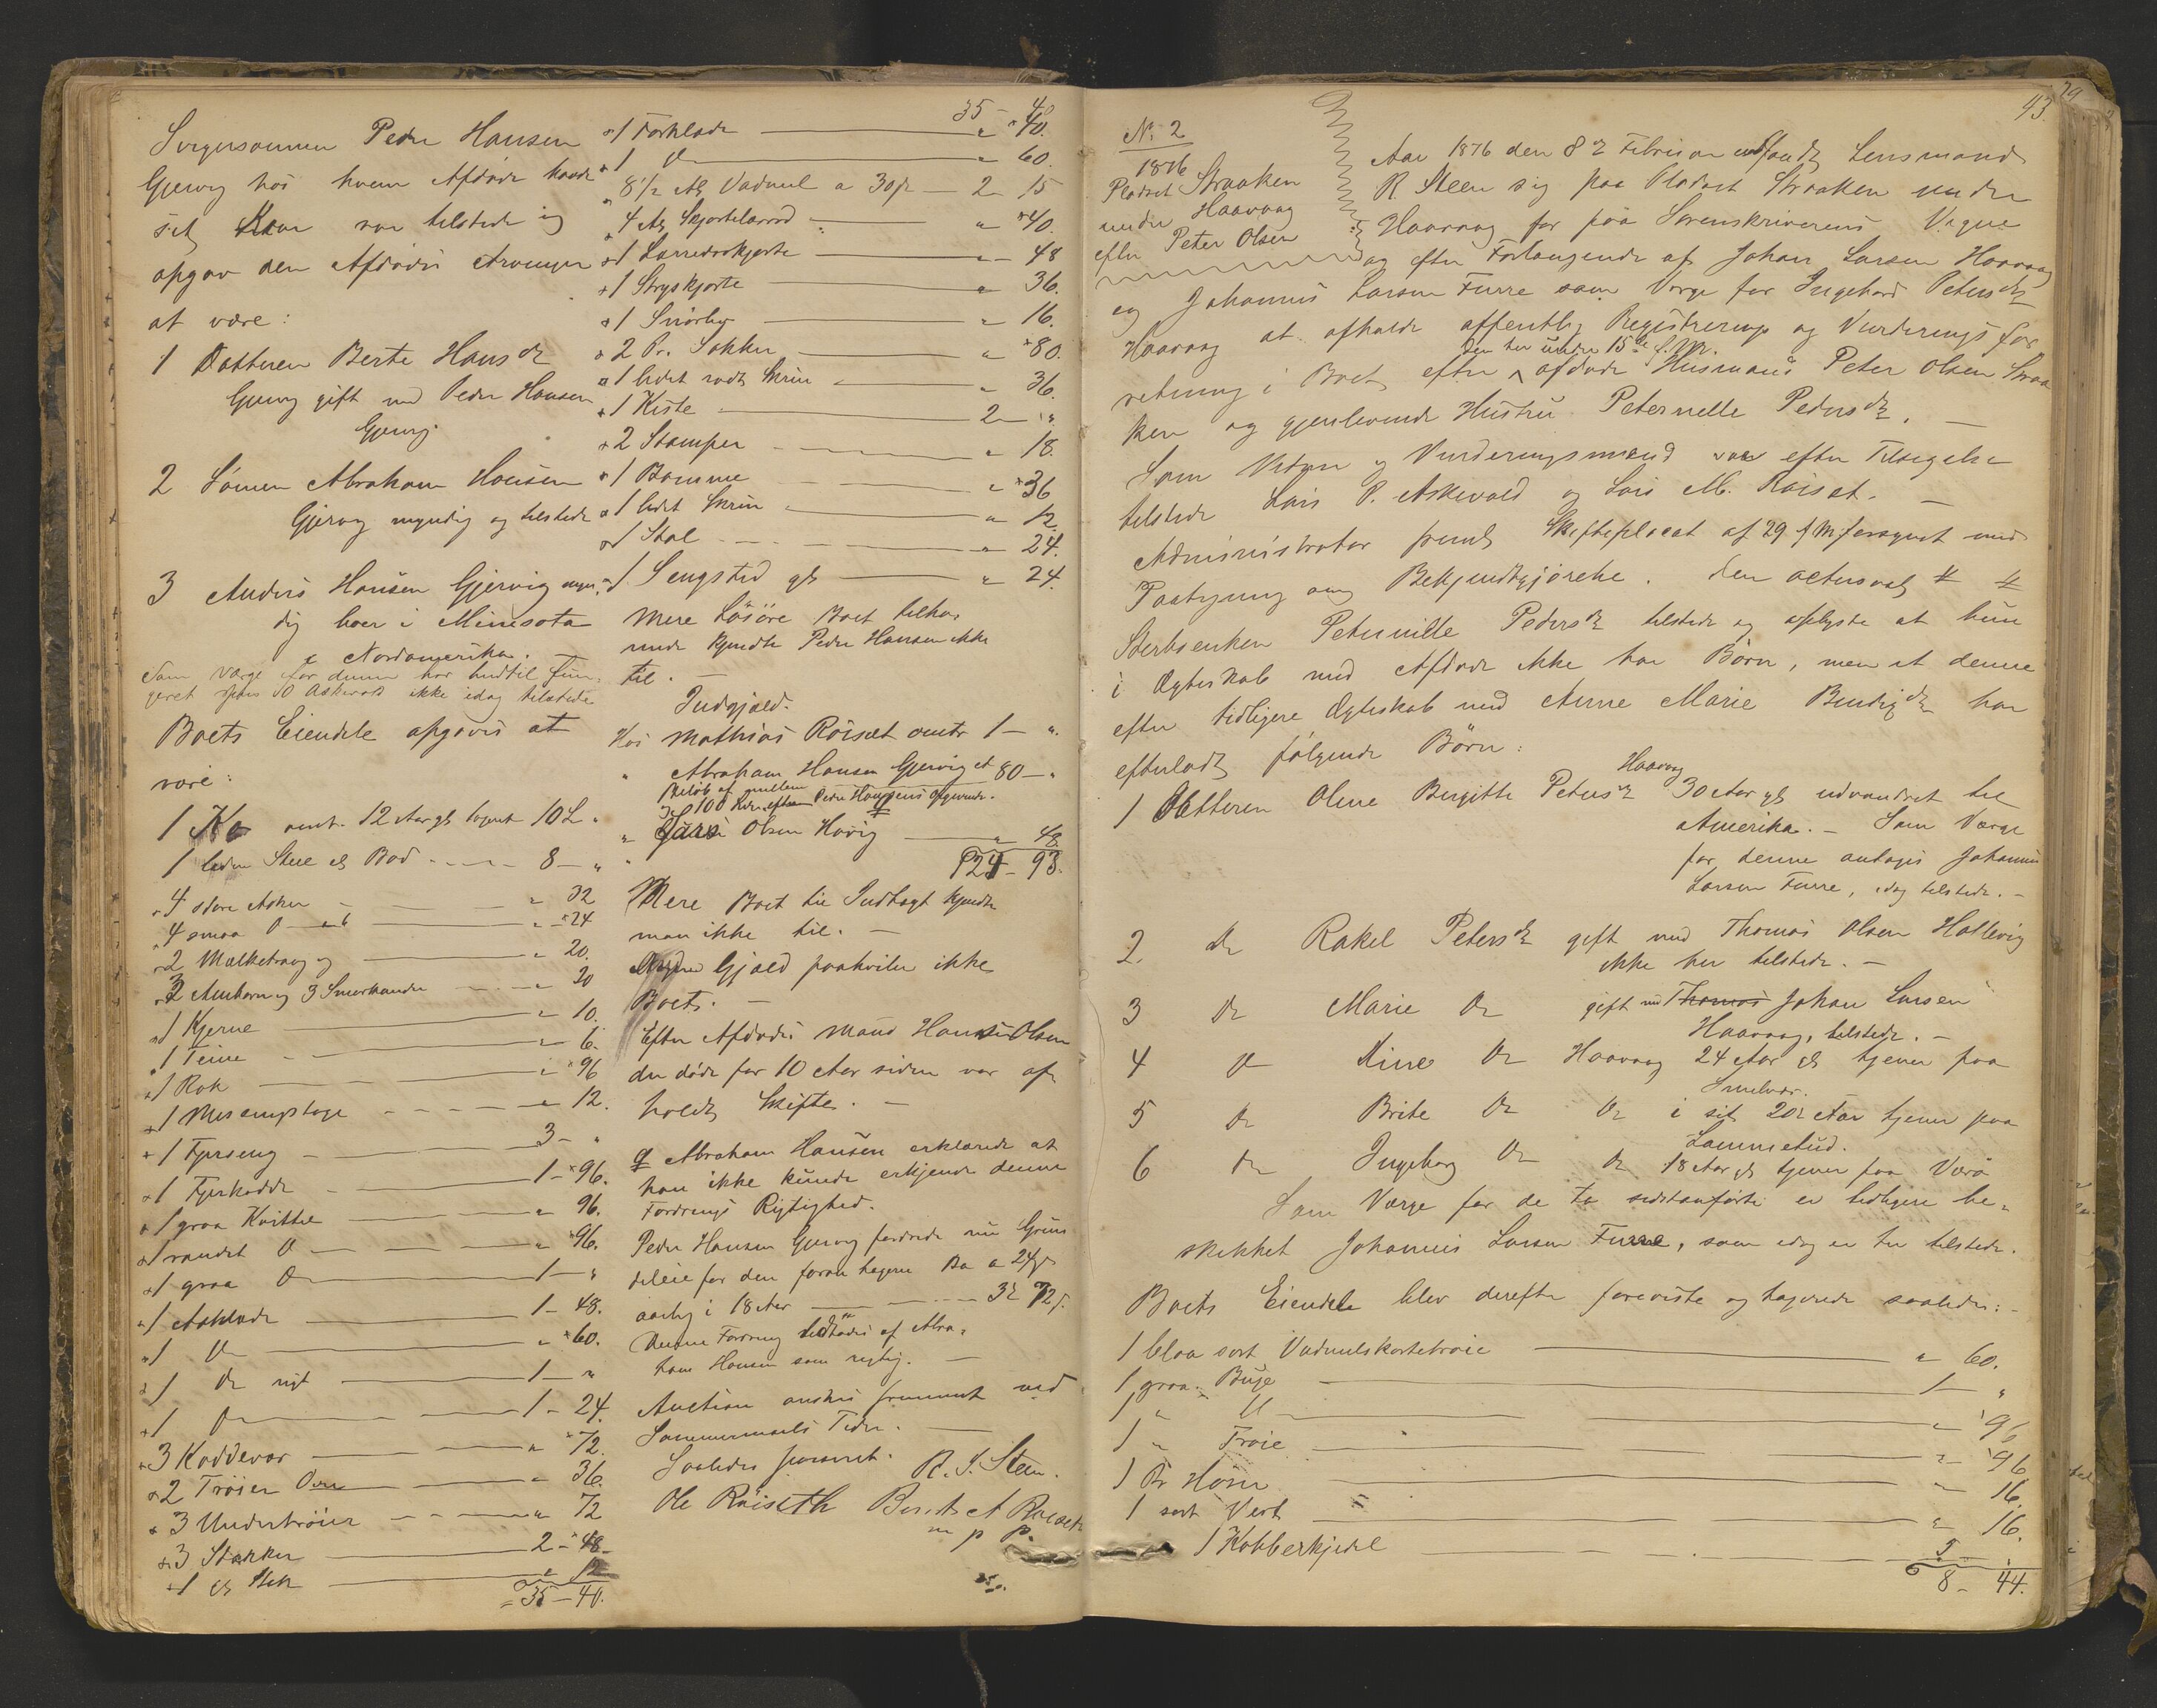 Svigersønnen Peder Hansen
Gjervig hos hvem Afdøde havde
sit Kaar var tilstede og
opgav den Afdødes Arvinger
at være:
1 Datteren Berte Hansdr
Gjervig gift med Peder Hansen
Gjervig
2 Sønnen Abraham Hansen
Gjervig myndig og tilstede
3 Anders Hansen Gjervig myn-
dig boer i Minisota
i Nordamerika.
Som Værge for denne har hidtil fun-
geret O Askevold ikke idag tilstede
Boets Eiendele opgaves at
være:
1 Ko omt. 12 Aar gl taxeret 10 "
1 liden Stue el Bod 8 - "
4 store Asker " 32
4 smaa D " 24
2 Melketraug " 20.
2 Ambarn og 3 Smørkander " 20
1 Kjerne " 10.
1 Teine " 6.
1 Rok " 96
1 " 12.
1 Fjerseng 3 - "
1 Fjerkodde 1 - 96.
1 graa Kvittel " 96.
1 randet D " 96.
1 graa Do 1 - "
1 Aaklæde 1 - 48.
1 Do " 60.
1 Do nyt 1 - "
1 Do 1 - 24.
3 Koddevar " 72.
2 Trøier " 36.
3 Undertrøier " 72
3 Stakker 2 - 48
1 gl Stak " 12
35 - 40.
35 - 40
1 Forklæde " 40.
1 Do " 60.
8 1/2 Al Vadmel a 30 2 - 15
4 Al Skjortelærred " 40.
1 Lærredsskjorte " 48
1 Stryskjorte " 36.
1 Snørliv " 16.
2 Pr. Sokker " 80.
1 lidet rødt Skrin " 36.
1 Kiste 2 - "
2 Stamper " 18.
1 Bomme " 36
1 lidet Skrin " 12.
1 Stol " 24.
1 Sengsted gl " 24.
Mere Løsøre Boet tilhø-
rende kjendte Peder Hansen ikke
til. -
Indgjæld.
Hos Mathias Röiset omtr 1 - "
" Abraham Hansen Gjervig et 80 - "
Beløb af mellem
og 100 efter Peder Hansens Opgivende.
" Lars Olsen Hovig " 48.
124 - 93.
Mere Boet til Indtægt kjendte
man ikke til. -
Gjæld paahviler ikke
Boet. -
Efter Afdødes Mand Hans Olsen
der døde for 10 Aar siden var af-
holdt Skifte. -
Abraham Hansen erklærede at
han ikke kunde erkjende denne
Fordrings Rigtighed.
Peder Hansen Gjervig fordrede nu Grun-
deleie for den foran taxerede a 24
aarlig i 18 Aar 3 72
Denne Fordring af Abra-
ham Hansen som rigtig. -
Auction ønskes fremmet ved
Sommermaals Tider.
Saaledes passeret. R. S. Steen.
Ole Röiseth
m p P.
43.
29
No. 2
1876
Pladset Straaken
under Haavaag
efter Peter Olsen
Aar 1876 den 8de Februar indfandt Lensmand
R Steen sig paa Pladset Straaken under
Haavaag for paa Sorenskriverens Vegne
og efter Forlangende af Johan Larsen Haavaag
og Johannes Larsen Furre som Værge for Ingebord Petersdr
Haavaag at afholde offentlig Registrerings og Vurderings for
retning i Boet efter den her under 15de f. M. afdøde Husmand Peter Olsen Straa
ken og gjenlevende Hustru Peternelle Pedersdr. -
Som Vidner og Vurderingsmænd var efter Tilsigelse
tilstede Lars P. Askevold og Lars M. Röiset. -
Administrator fremlagde Skifteplacat af 29 f M forsynet med
Paategning om Bekjendtgjørelse. Den acteres
Sterboenken Peternille Pedersdr tilstede og oplyste at hun
i Ægteskab med Afdøde ikke har Børn, men at denne
efter tidligere Ægteskab med Anne Marie har
efterladt følgende Børn:
1 Datteren Oline Bergitte Petersdr Haavaag 30 Aar gl udvandret til
Amerika. - Som Værge
for denne antages Johannes
Larsen Furre, idag tilstede. -
2. Do Rakel Petersdr gift med Thomas Olsen Hatlevig
ikke her tilstede. -
3 Do Marie Do gift med Thomas Johan Larsen
Haavaag, tilstede. -
4 Do Do Haavaag 24 Aar gl tjener paa
5 Do Brite Do Do i sit 20de Aar tjener paa
6 Do Ingeborg Do Do 18 Aar gl tjener paa Værö
Som Værge for de to sidstanførte er tidligere be-
skikket Johannes Larsen Furre, som idag er her tilstede.
Boets Eiendele blev derefter foreviste og taxerede saaledes: -
1 blaa sort Vadmelskortetrøie " 60.
1 graa Buxe 1 - "
1 " Do " 96
1 " Trøie " 96
1 Pr Hoser " 16.
1 sort Vest " 16.
1 Kobberkjedel 5 -
8 - 44.